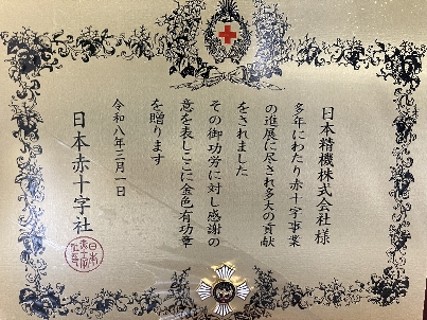 日本精機株式会社 様
多年にわたり赤十字事業
の進展に尽され多大の貢献
をされました
その御功労に対し感謝の
意を表しここに金色有功章
を贈ります
令和八年三月一日
日本赤十字社